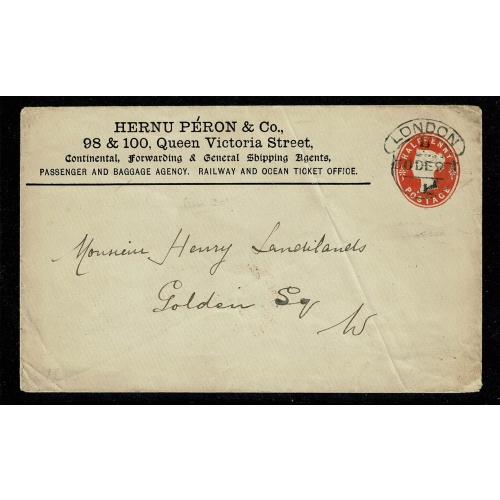 HERNU PÉRON & Co.,
98 & 100, Queen Victoria Street,
Continental, Forwarding & General Shipping Agents,
PASSENGER AND BAGGAGE AGENCY. RAILWAY AND OCEAN TICKET OFFICE.
LONDON
HALFPENNY
POSTAGE
Monsieur Henry Landilands
Golden Sq
W